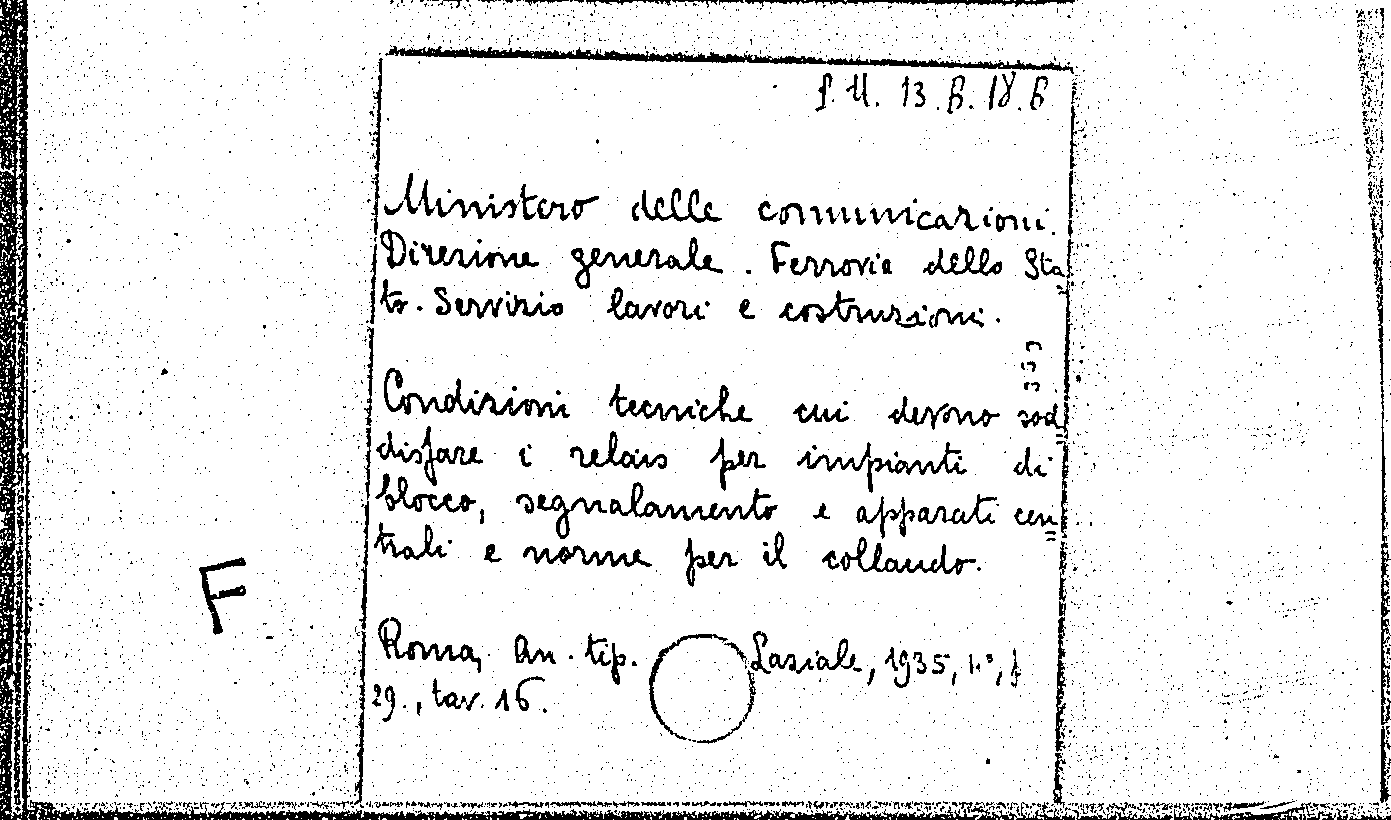 P. U. 13. B. 18. B
Ministero delle comunicazioni.
Direzione generale. Ferrovie dello Sta
to. Servizio lavori e costruzioni.
Condizioni tecniche cui devono sod
disfare i relais per impianti di
blocco, segnalamento e apparati cen
trali e norme per il collaudo.
F
Roma, An. tip. Laziale, 1935, f
29., tav. 16.